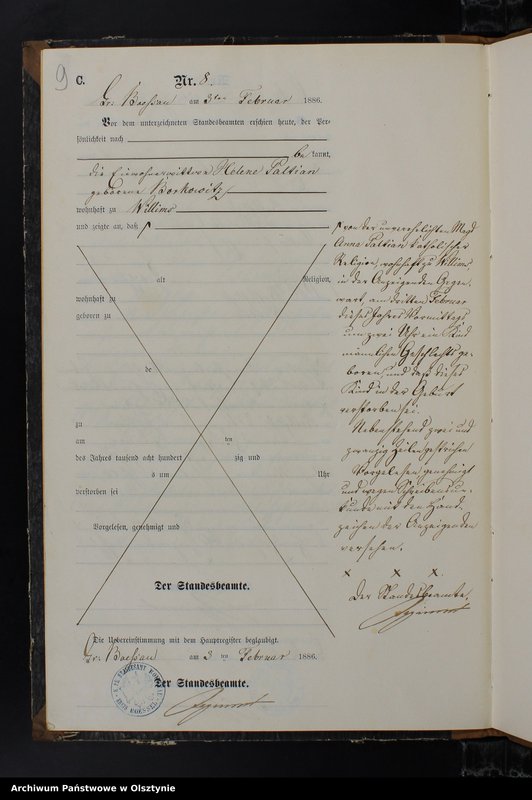 9
C.
Nr. 8.
Gr: Boessau am 3ten Februar 1886.
Vor dem unterzeichneten Standesbeamten erschien heute, der Per-
sönlichkeit nach
bekannt,
die Einwohnerwittwe Helene Paltian
geborene Borkowitz
wohnhaft zu Willims
und zeigte an, daß
von der unverehelichten Magd
Anna Paltian katholischer
Religion, wohnhaft zu Willims
in der Anzeigenden Gegen-
wart, am dritten Februar
dieses Jahres Vormittags
um zwei Uhr ein Kind
männlichen Geschlechts ge-
boren, und daß dieses
Kind in der Geburt
verstorben sei.
Nebenstehend zwei und
zwanzig Zeilen gestrichen
Vorgelesen, genehmigt
und wegen Schreibensun-
kunde mit den Hand-
zeichen der Anzeigenden
versehen.
x x x.
Der Standesbeamte.
alt Religion,
wohnhaft zu
geboren zu
de
zu
am ten
des Jahres tausend acht hundert zig und
s um Uhr
verstorben sei
Vorgelesen, genehmigt und
Der Standesbeamte.
Die Uebereinstimmung mit dem Hauptregister beglaubigt.
Gr: Boessau am 3ten Februar 1886.
Der Standesbeamte.
Archiwum Państwowe w Olsztynie